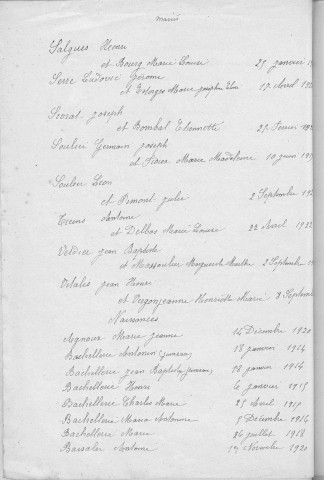 Salgues Henri
et Bourg Marie Louise 25 janvier
Serre Ludovic Gérome
et Estorges Marie 10 Avril
joseph
et Bombal Etiennette 27 Fevrier
Soulier Germain joseph
et Marie Madeleine 10 juin
Soulier Léon
et Pimont julie 2 Septembre
Antoine
et Delbos Marie Louise 22 Avril 1922
Verdier jean Baptiste
et Massoulier Marguerite Marthe 2 Septembre
Vitalis jean Henri
et Henriette Marie 3 Septembre
Naissances
Agnoux Marie jeanne 14 Décembre 1920
Bachellerie Antonin (jumeau) 18 janvier 1914
Bachellerie jean Baptiste (jumeau) 18 janvier 1914
Bachellerie Henri 6 janvier 1915
Bachellerie Charles Marie 25 Avril 1915
Bachellerie Maria Antonine 5 Décembre 1916
Bachellerie Maria 26 juillet 1918
Antoine 19 Novembre 1920